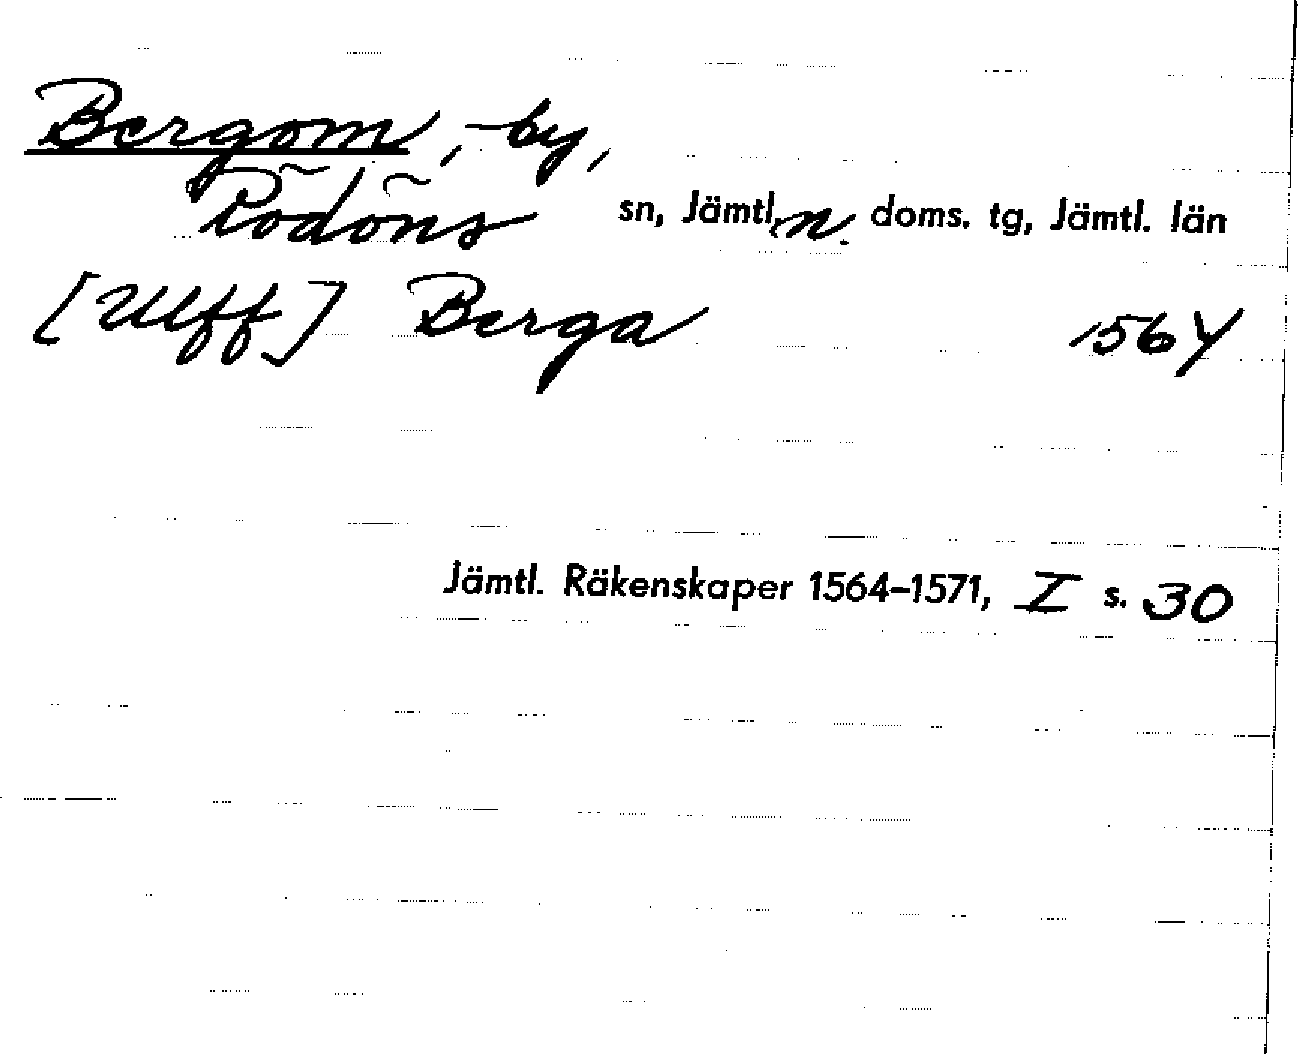 Bergom, by,
Rödöns sn, Jämtl. n. doms. tg, Jämtl. län
[Ulff] Berga 1564
Jämtl. Räkenskaper 1564–1571, I s. 30